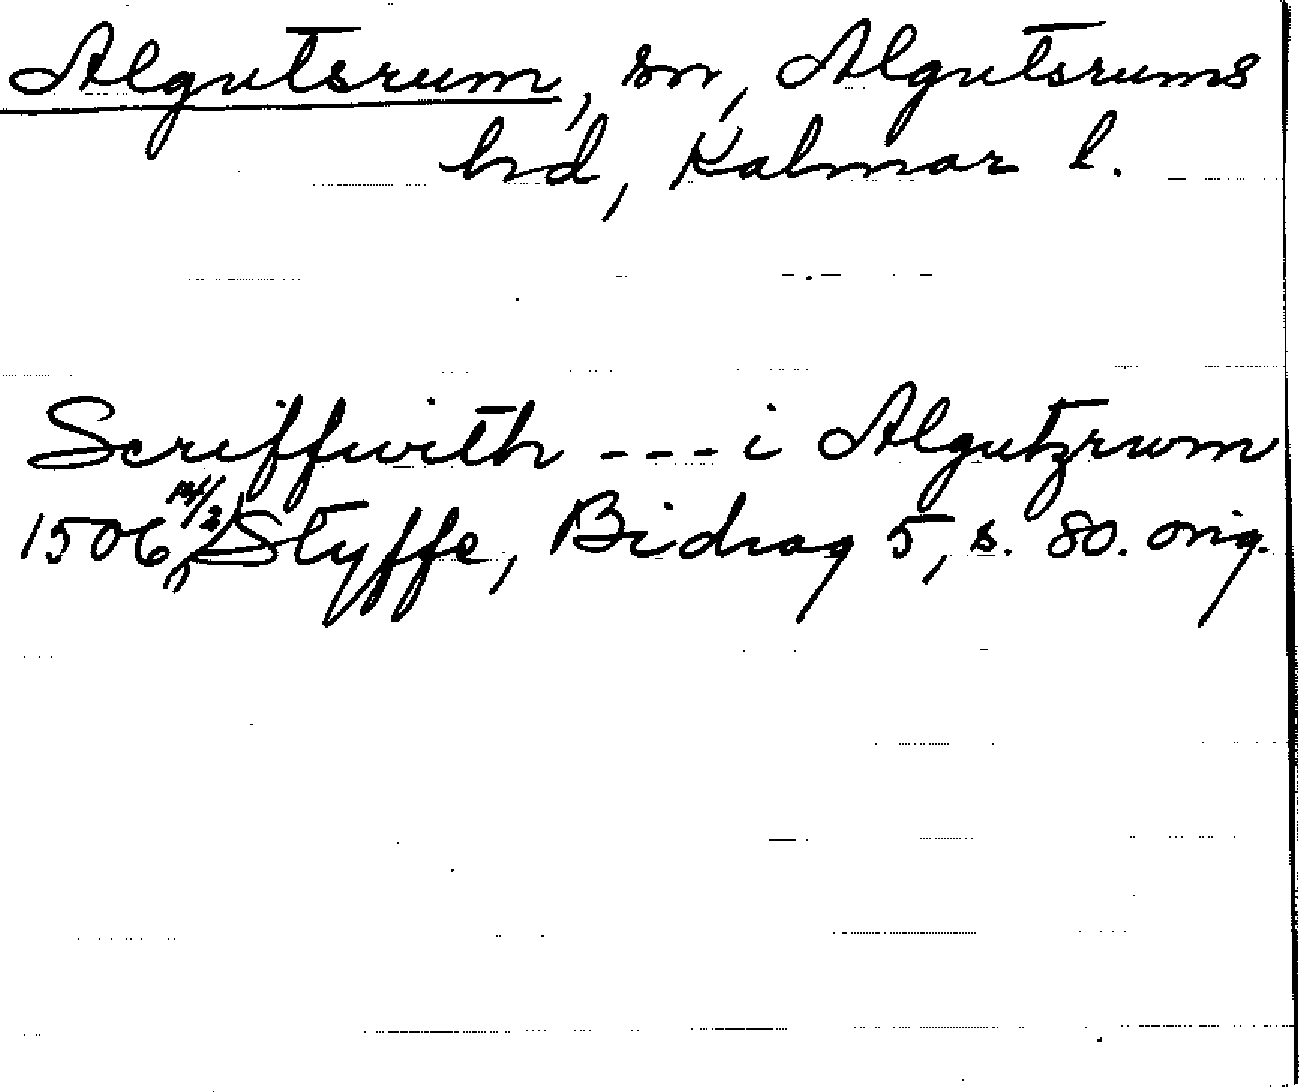 Algutsrum, sn, Algutsrums
hd, Kalmar l.
Scriffwith --- i Algutzrwm
1506 14/2, Styffe, Bidrag 5, s. 80. orig.